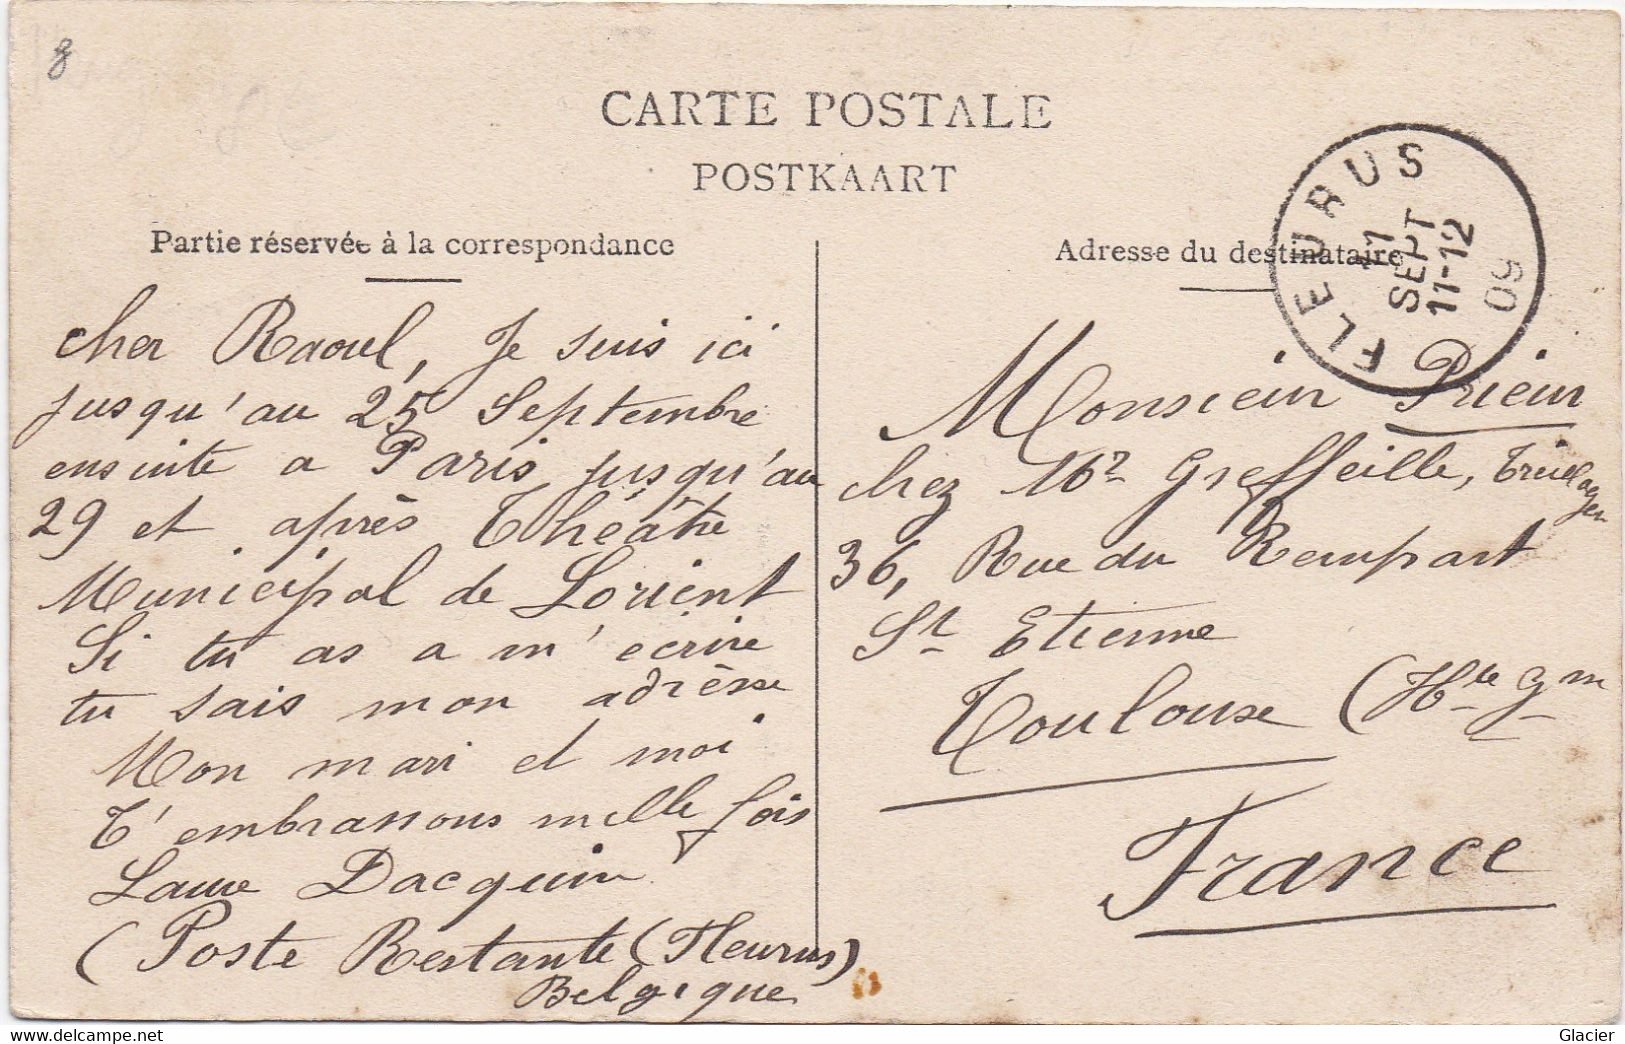 8
CARTE POSTALE
POSTKAART
Partie réservée à la correspondance
Adresse du destinataire
FLEURUS
11
SEPT
11-12
09
Cher Raoul, Je suis ici
jusqu'au 25 Septembre
ensuite a Paris jusqu'au
29 et après Théâtre
Municipal de Lorient
Si tu as a m'écrire
tu sais mon adresse
Mon mari et moi
t'embrassons mille fois
Laure Dacquin
(Poste Restante (Fleurus)
Belgique
Monsieur Prieur
chez Mr Greffeille,
36, Rue du Rempart
St Etienne
Toulouse (Hte Gne
France
Glacier